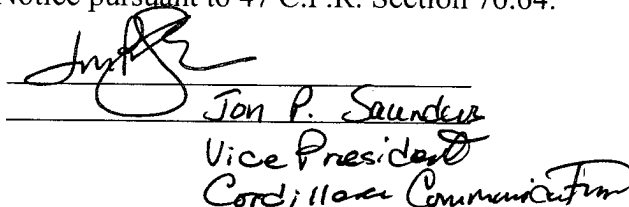 Notice pursuant to 47 C.F.R. Section 76.64.
Jon P. Saunders
Vice President
Cordillera Communication